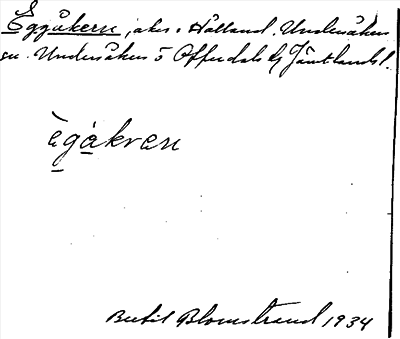 Eggåkern, åker i Hålland. Undersåkers
sn. Undersåkers o Offerdals tg Jämtlands l.
ègåkren
Bertil Blomstrand 1934